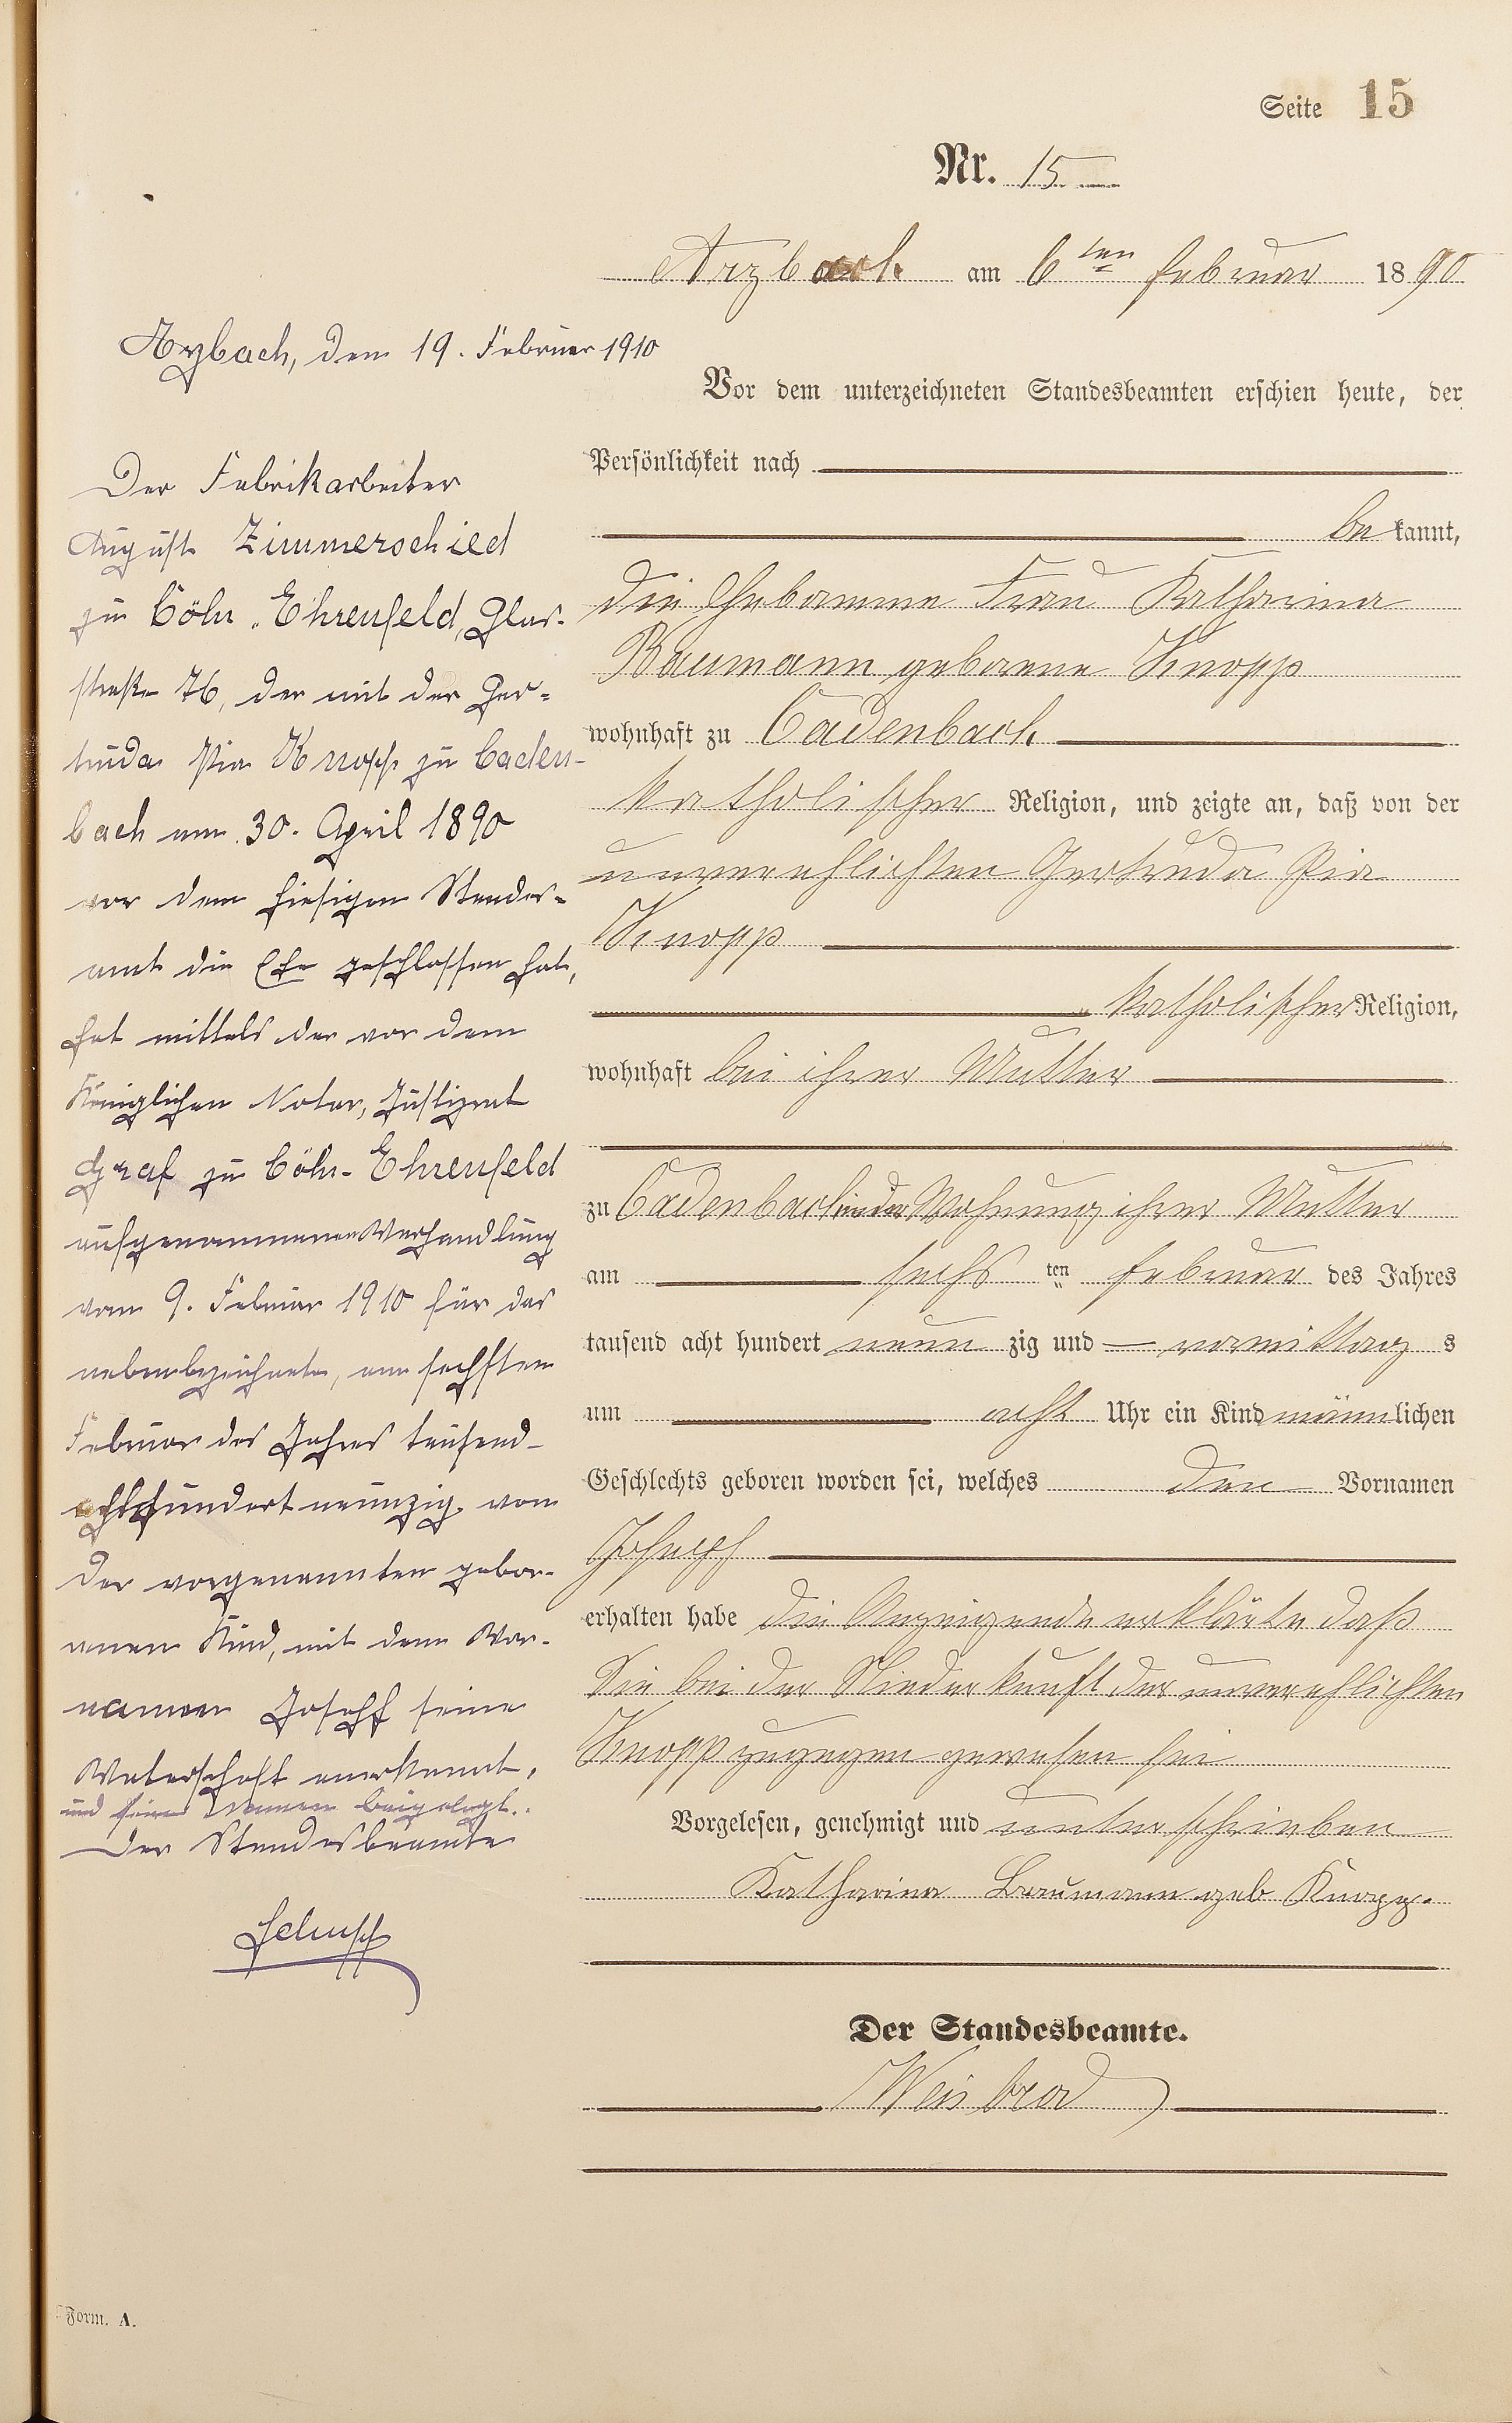 Seite 15
Nr. 15
Arzbach am 6ten Februar 1890
Vor dem unterzeichneten Standesbeamten erschien heute, der
Persönlichkeit nach
bekannt,
die Hebamme Frau Katharina
Baumann geborene Knopp
wohnhaft zu Cadenbach
katholischer Religion, und zeigte an, daß von der
unverehlichten Gertruda Pia
Knopp
katholischer Religion,
wohnhaft bei ihrer Mutter
zu Cadenbach in der Wohnung ihrer Mutter
am sechs ten Februar des Jahres
tausend acht hundert neun zig und vormittags
um acht Uhr ein Kind männlichen
Geschlechts geboren worden sei, welches den Vornamen
Joseph
erhalten habe die Anzeigende erklärte daß
Sie bei der Niederkunft der unverehlichten
Knopp zugegen gewesen sei
Vorgelesen, genehmigt und unterschrieben
Katharina Baumann geb Knopp.
Der Standesbeamte.
Weisbrod
Arzbach, den 19. Februar 1910
Der Fabrikarbeiter
August Zimmerschied
zu Cöln-Ehrenfeld, Glas-
straße 76, der mit der Ger-
truda Pia Knopp zu Caden-
bach am 30. April 1890
vor dem hiesigen Standes-
amt die Ehe geschlossen hat,
hat mittels der vor dem
Königlichen Notar, Justizrat
Graf zu Cöln-Ehrenfeld
aufgenommenen Verhandlung
vom 9. Februar 1910 für das
nebenbezeichnete, am sechsten
Februar des Jahres tausend-
achthundert neunzig von
der vorgenannten gebor-
enen Kind, mit dem Vor-
namen Joseph seine
Vaterschaft anerkannt,
und seinen Namen beigelegt.
Der Standesbeamte
Form. A.